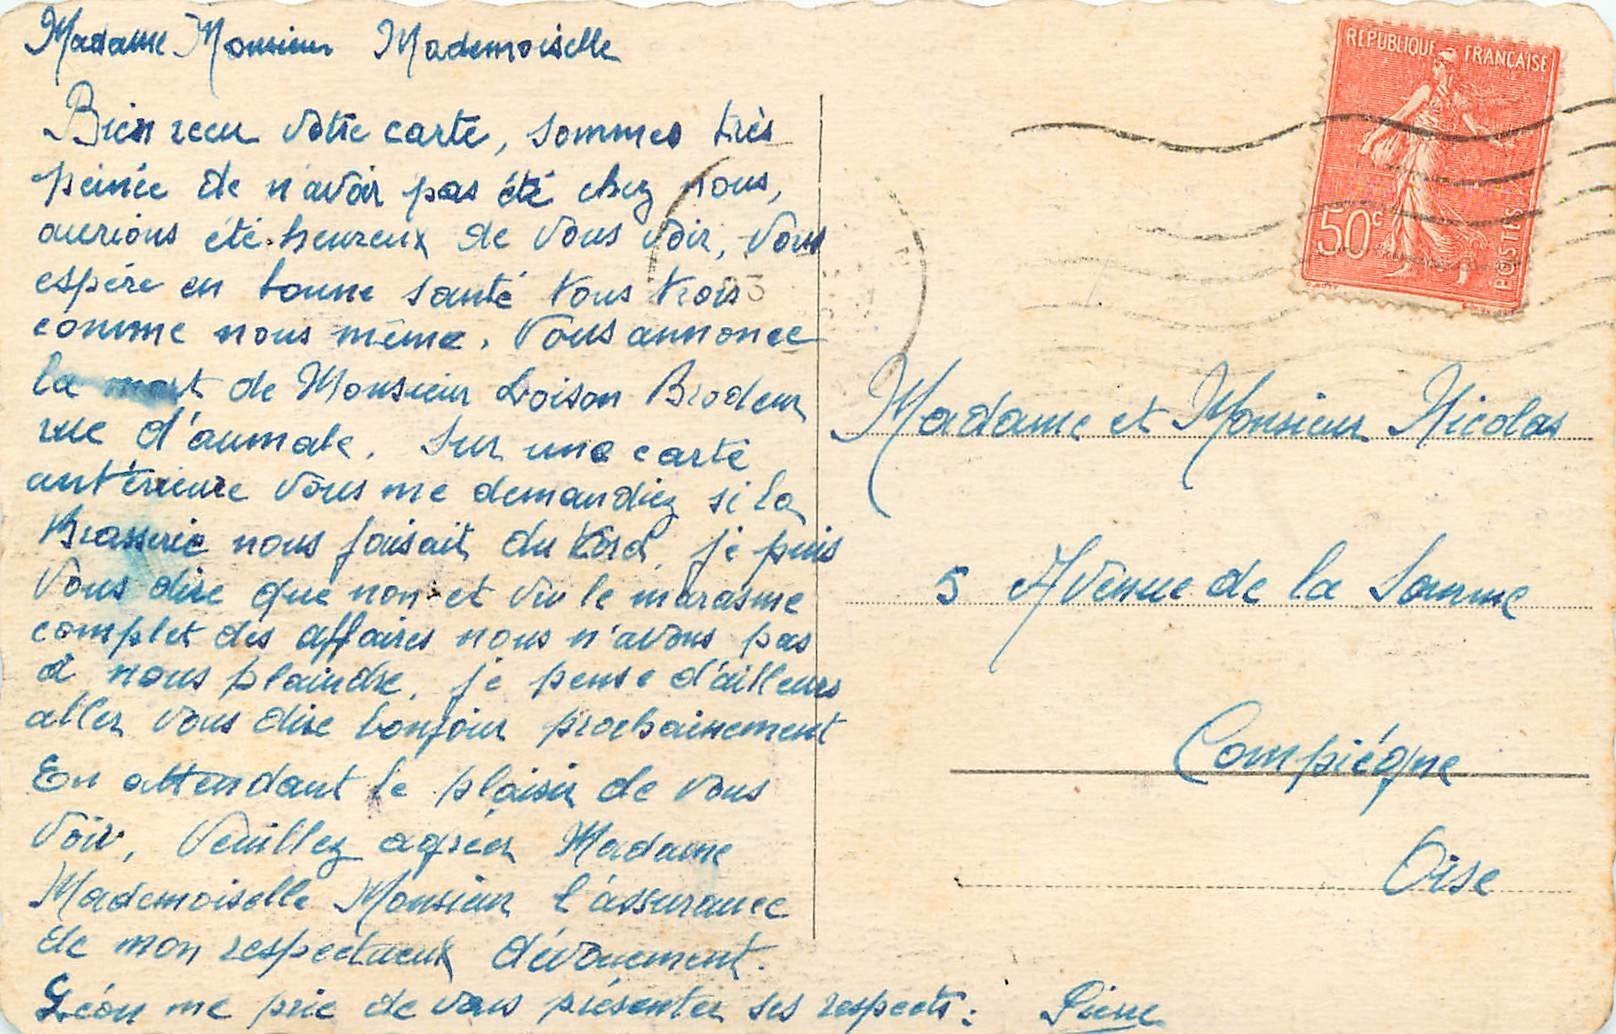 Madame Monsieur Mademoiselle
Bien recu votre carte, sommes très
peinée de n'avoir pas été chez nous,
aurions été heureux de vous voir, vous
espère en bonne santé tous trois
comme nous même. Vous annonce
la mort de Monsieur Loison Brodeur
rue d'aumale. Sur une carte
antérieure vous me demandiez si la
Brasserie nous faisait du tord, je puis
vous dire que non et vu le marasme
complet des affaires nous n'avons pas
à nous plaindre, je pense d'ailleurs
aller vous dire bonjour prochainement
En attendant le plaisir de vous
voir, veuillez agréer Madame
Mademoiselle Monsieur l'assurance
de mon respectueux dévouement.
Léon me prie de vous présenter ses respects: Pierre
REPUBLIQUE FRANÇAISE
50c
POSTES
Madame et Monsieur Nicolas
5 Avenue de la Somme
Compiégne
Oise